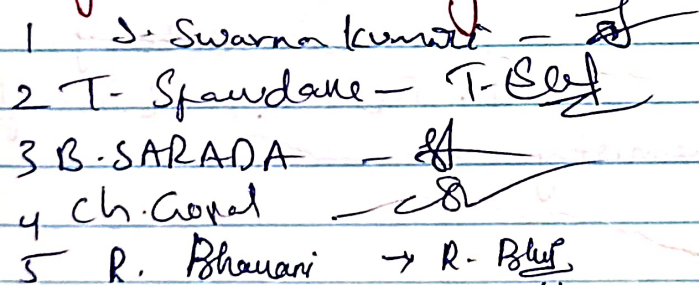 1 S. Swarna Kumari -
2 T- Spandana - T.
3 B. SARADA -
4 Ch. Gopal -
5 R. Bhavani → R.